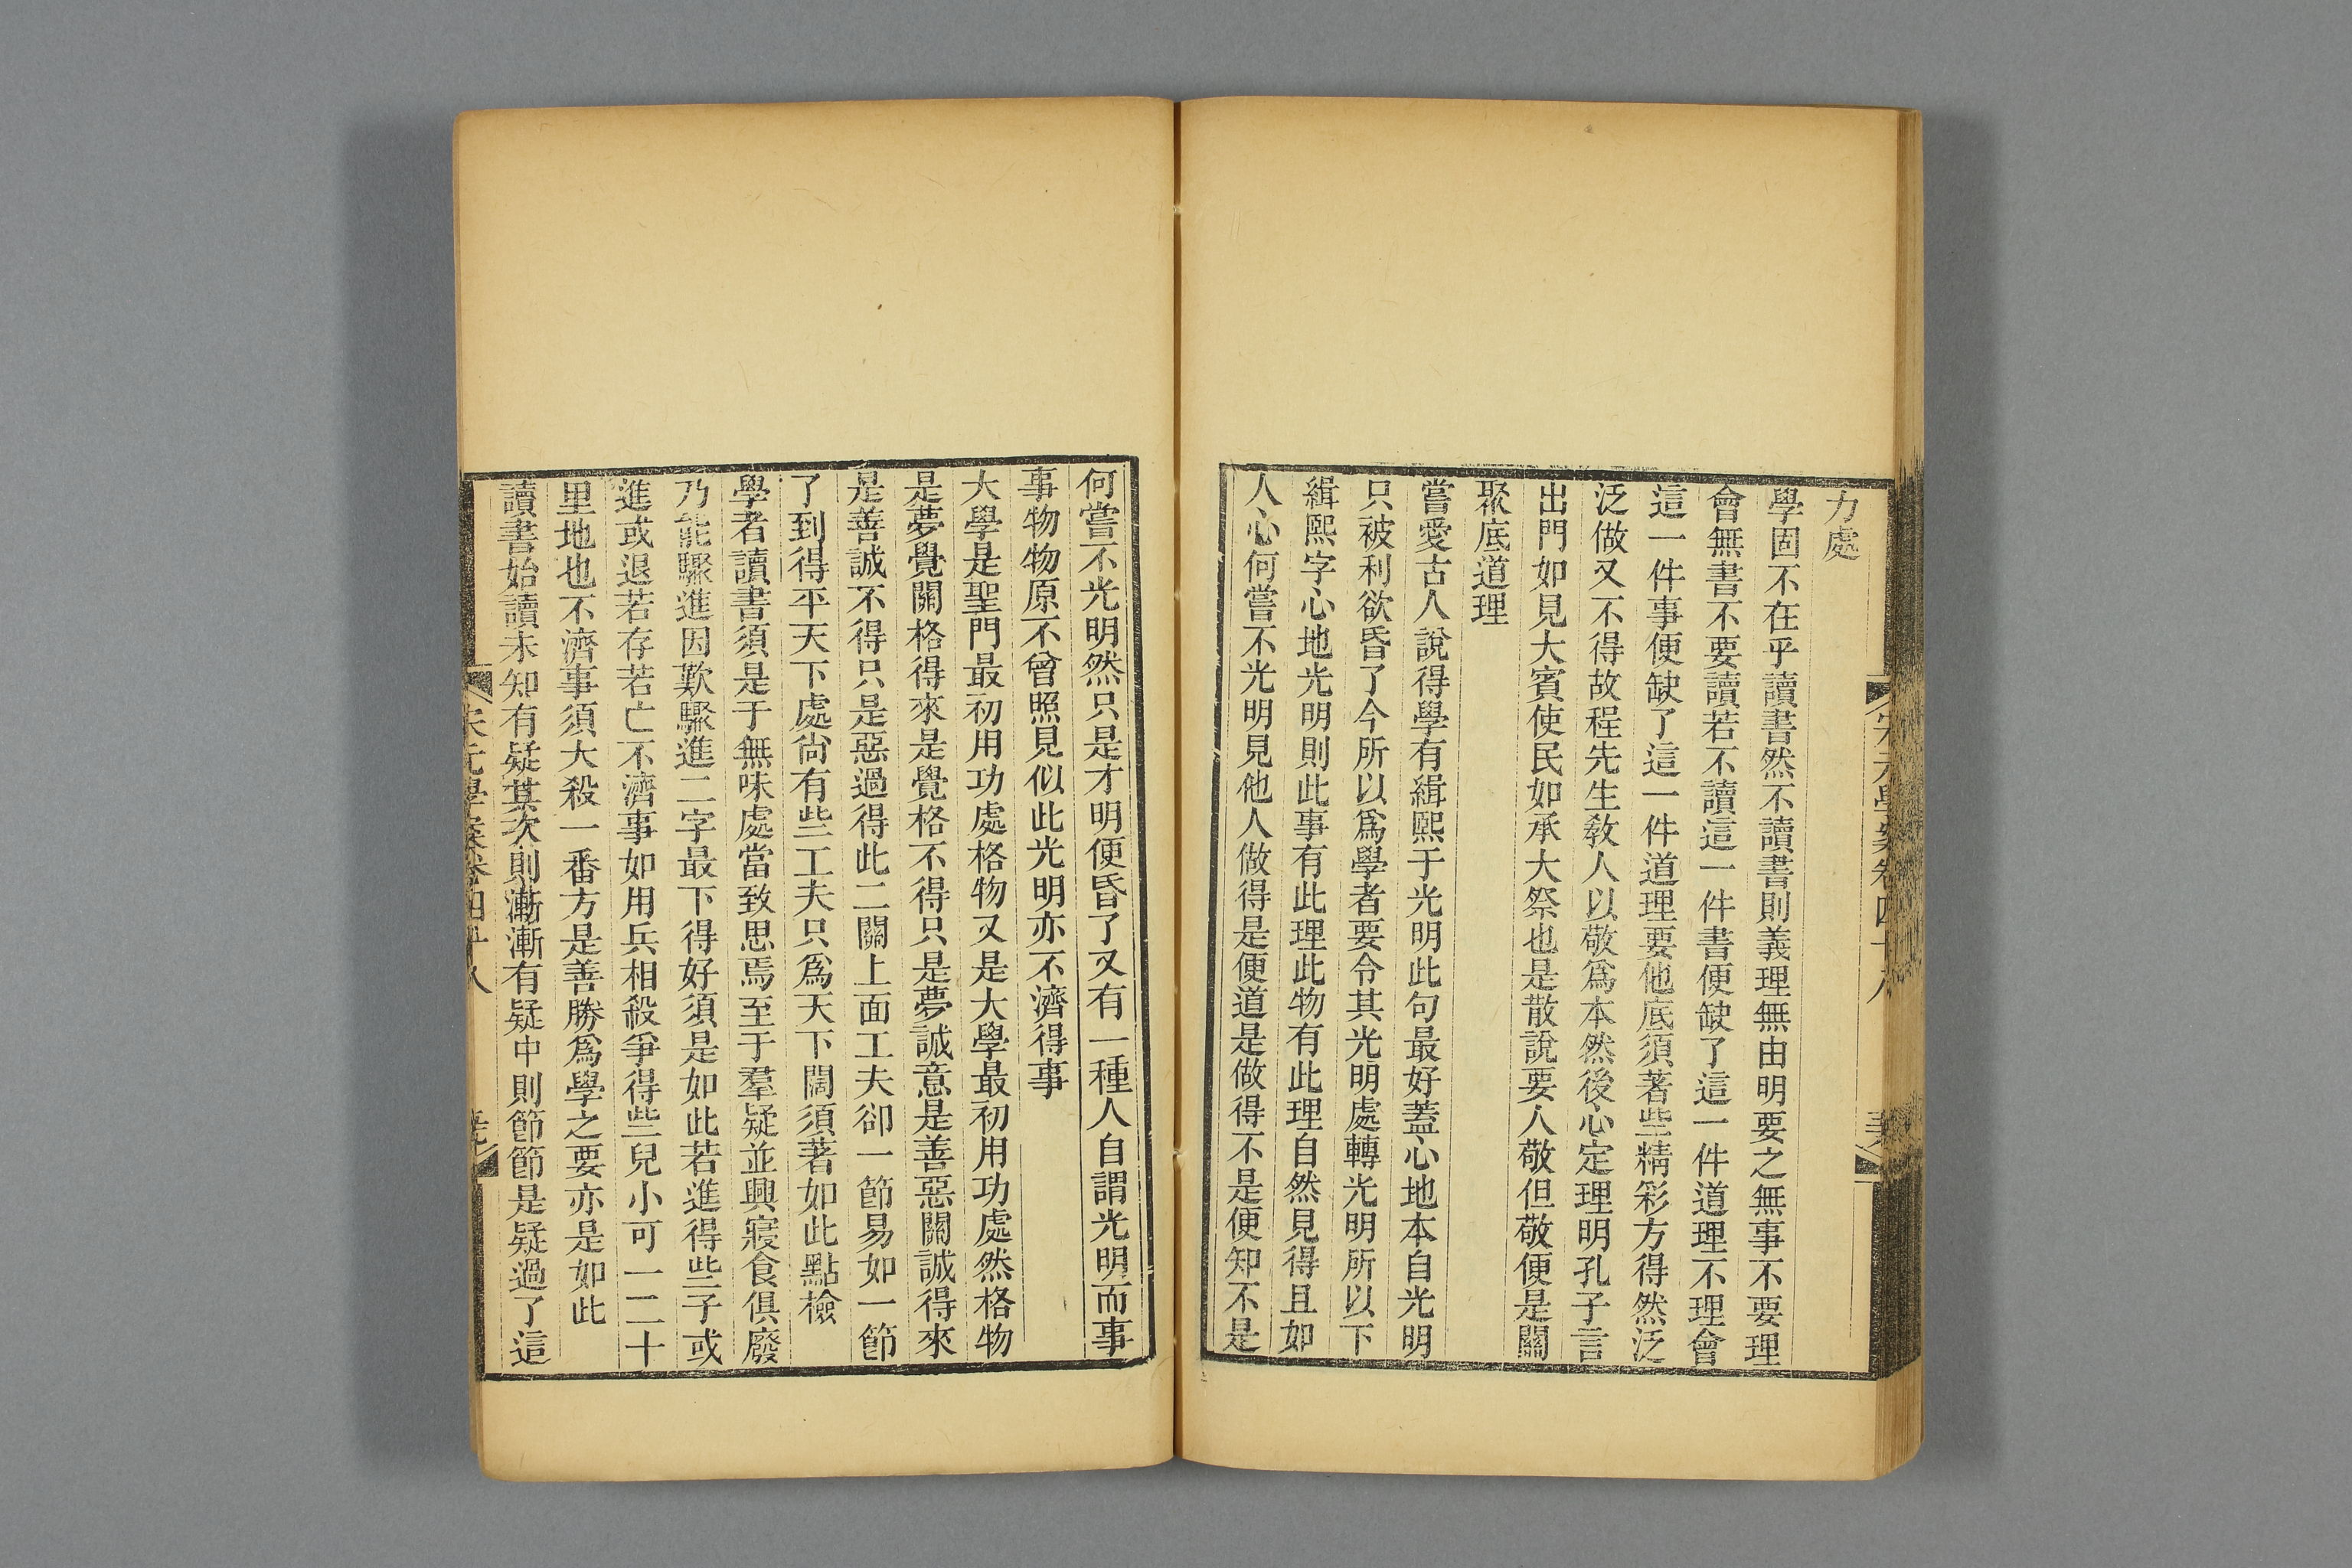 力處
學固不在乎讀書然不讀書則義理無由明要之無事不要理
會無書不要讀若不讀這一件書便缺了這一件道理不理會
這一件事便缺了這一件道理要他底須著些精彩方得然泛
泛做又不得故程先生敎人以敬爲本然後心定理明孔子言
出門如見大賓使民如承大祭也是散說要人敬但敬便是關
聚底道理
嘗愛古人說得學有緝熙于光明此句最好蓋心地本自光明
只被利欲昏了今所以爲學者要令其光明處轉光明所以下
緝熙字心地光明則此事有此理此物有此理自然見得且如
人心何嘗不光明見他人做得是便道是做得不是便知不是
何嘗不光明然只是才明便昏了又有一種人自謂光明而事
事物物原不曾照見似此光明亦不濟得事
大學是聖門最初用功處格物又是大學最初用功處然格物
是夢覺關格得來是覺格不得只是夢誠意是善惡關誠得來
是善誠不得只是惡過得此二關上面工夫卻一節易如一節
了到得平天下處尙有些工夫只爲天下闊須著如此點檢
學者讀書須是于無味處當致思焉至于羣疑並興寢食俱廢
乃能驟進因歎驟進二字最下得好須是如此若進得些子或
進或退若存若亡不濟事如用兵相殺爭得些兒小可一二十
里地也不濟事須大殺一番方是善勝爲學之要亦是如此
讀書始讀未知有疑其次則漸漸有疑中則節節是疑過了這
宋元學案卷四十八